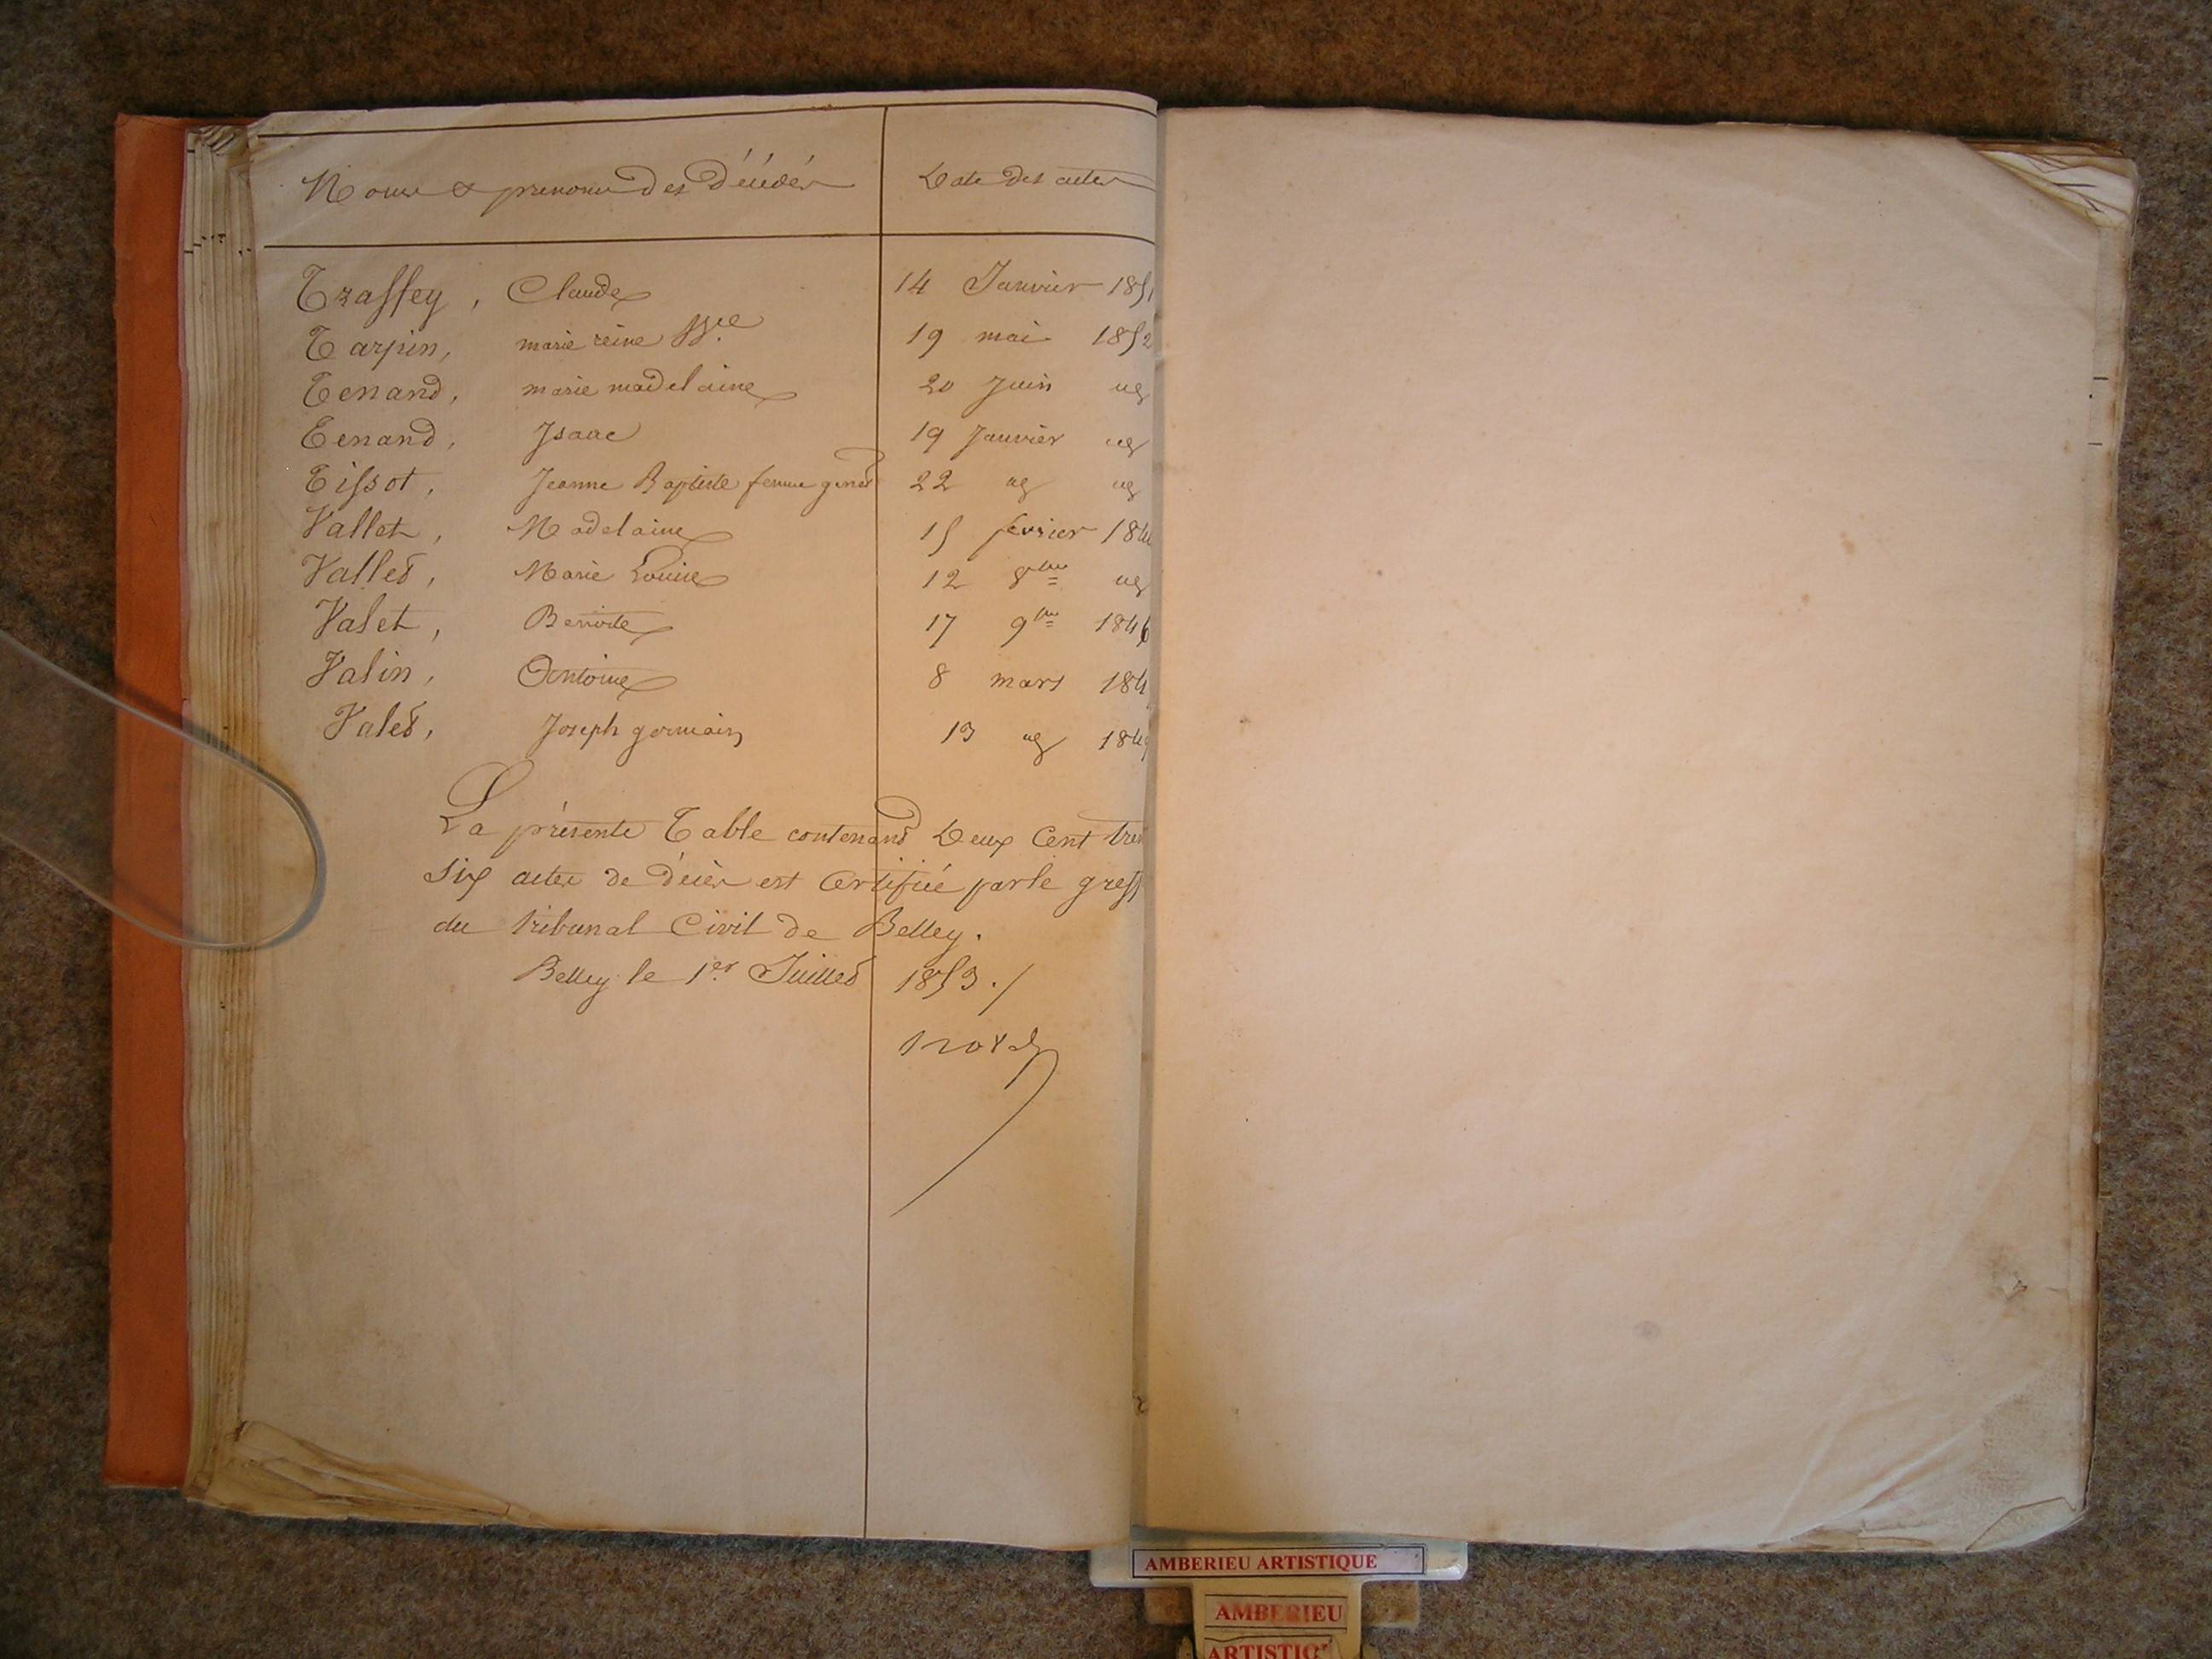 Noms & prenoms des Décédés Date des actes
Traffey, Claude 14 Janvier 1851
Tarpin, marie reine 19 mai 1852
Tenand, marie madelaine 20 Juin
Tenand, Isaac 19 Janvier
Tissot, Jeanne Baptiste femme 22
Vallet, Madelaine 15 fevrier 184
Vallet, Marie Louise 12 8bre
Valet, Benoite 17 9bre 1846
Valin, Antoine 8 mars 184
Valet, Joseph germain 13 184
La présente Table contenant Deux Cent tren
Six actes de décès est Certifiée par le greff
du tribunal Civil de Belley.
Belley le 1er Juillet 1853./
AMBERIEU ARTISTIQUE
AMBERIEU
ARTISTIQ